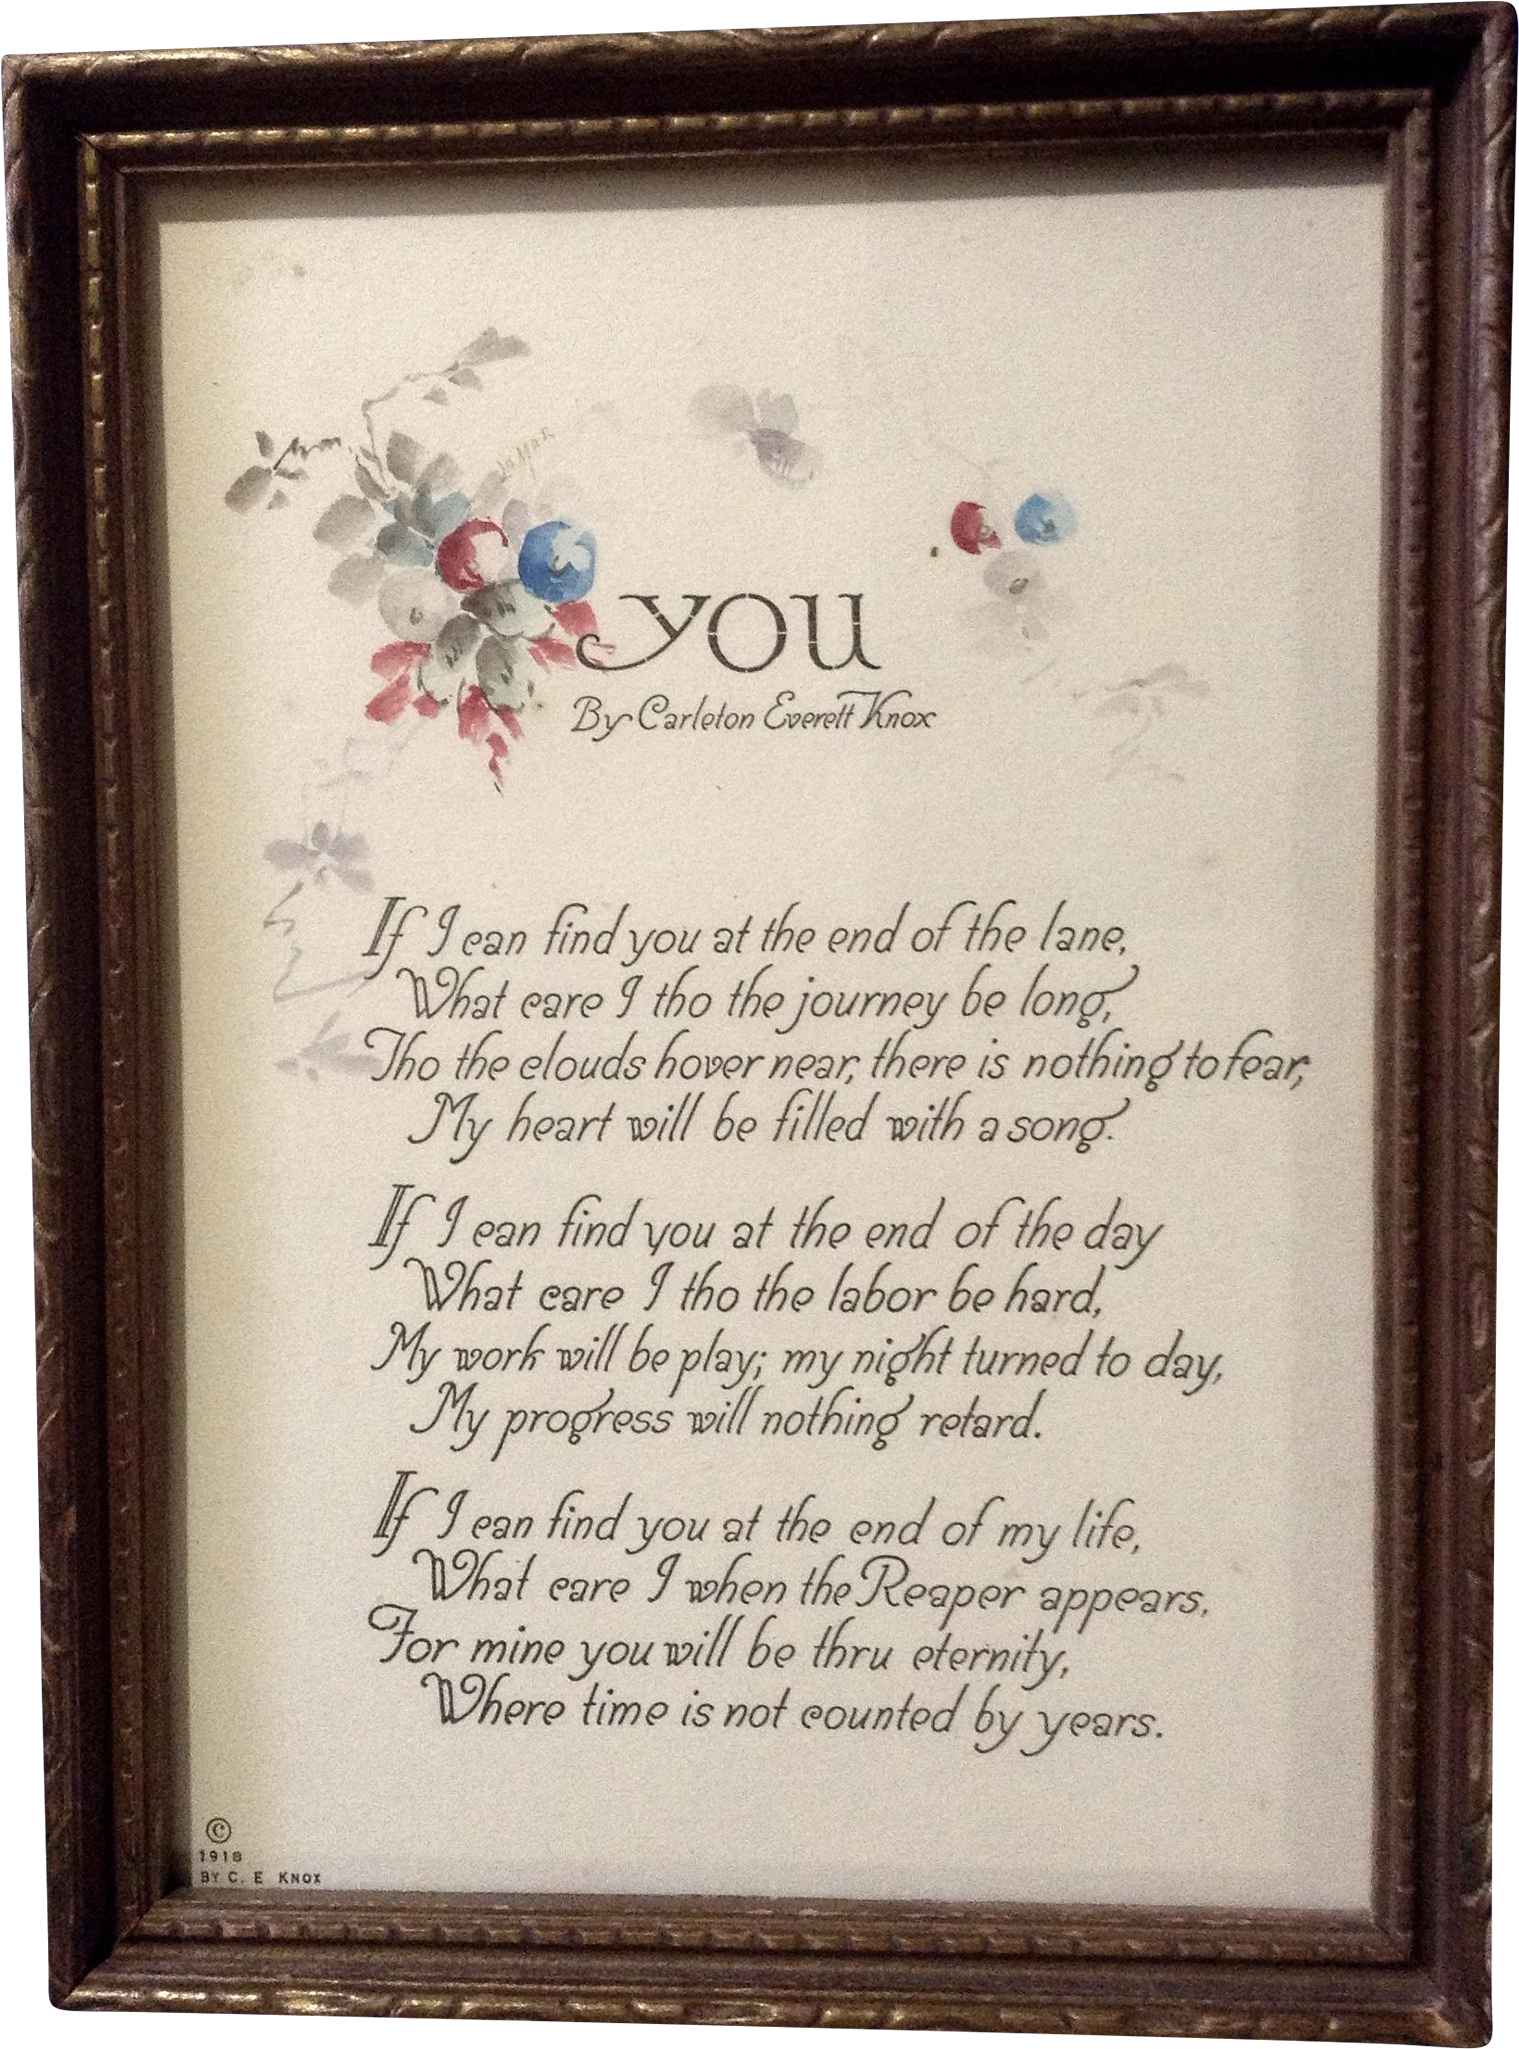 you
By Carleton Everett Knox
If I can find you at the end of the lane,
What care I tho the journey be long,
Tho the clouds hover near, there is nothing to fear,
My heart will be filled with a song.
If I can find you at the end of the day
What care I tho the labor be hard,
My work will be play; my night turned to day,
My progress will nothing retard.
If I can find you at the end of my life,
What care I when the Reaper appears,
For mine you will be thru eternity,
Where time is not counted by years.
©
1918
BY C. E KNOX